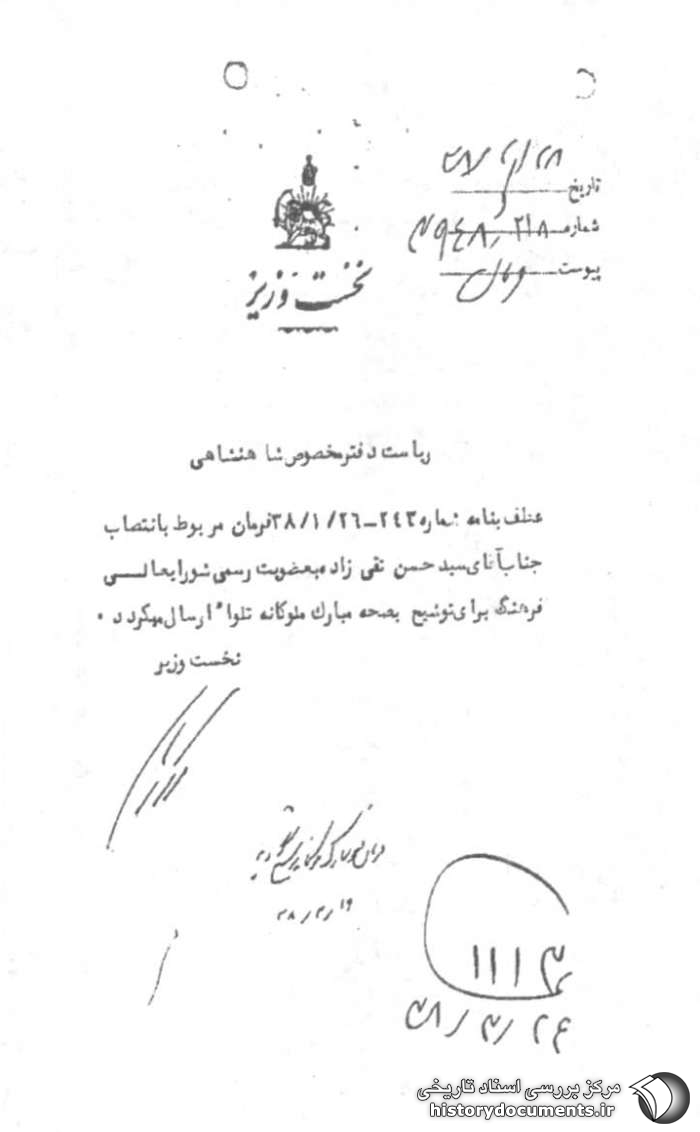 تاریخ ۳۸/۲/۲۸
شماره ۲۱۸
پیوست
نخست وزیر
ریاست دفتر مخصوص شاهنشاهی
عطف بنامه شماره ۲۴۳-۳۸/۱/۲۶ فرمان مربوط بانتصاب
جناب آقای سید حسن تقی زاده بعضویت رسمی شورایعالی
فرهنگ برای توشیح بصحه مبارك ملوکانه تلواً ارسال میگردد .
نخست وزیر
۱۹
۱۱۱۳
مرکز بررسی اسناد تاریخی
historydocuments.ir